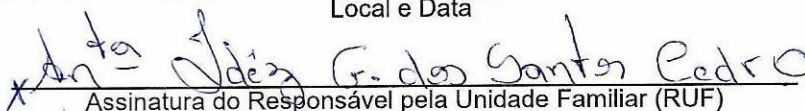 Local e Data
x Antª Idêz G. dos Santos Cedro
Assinatura do Responsável pela Unidade Familiar (RUF)